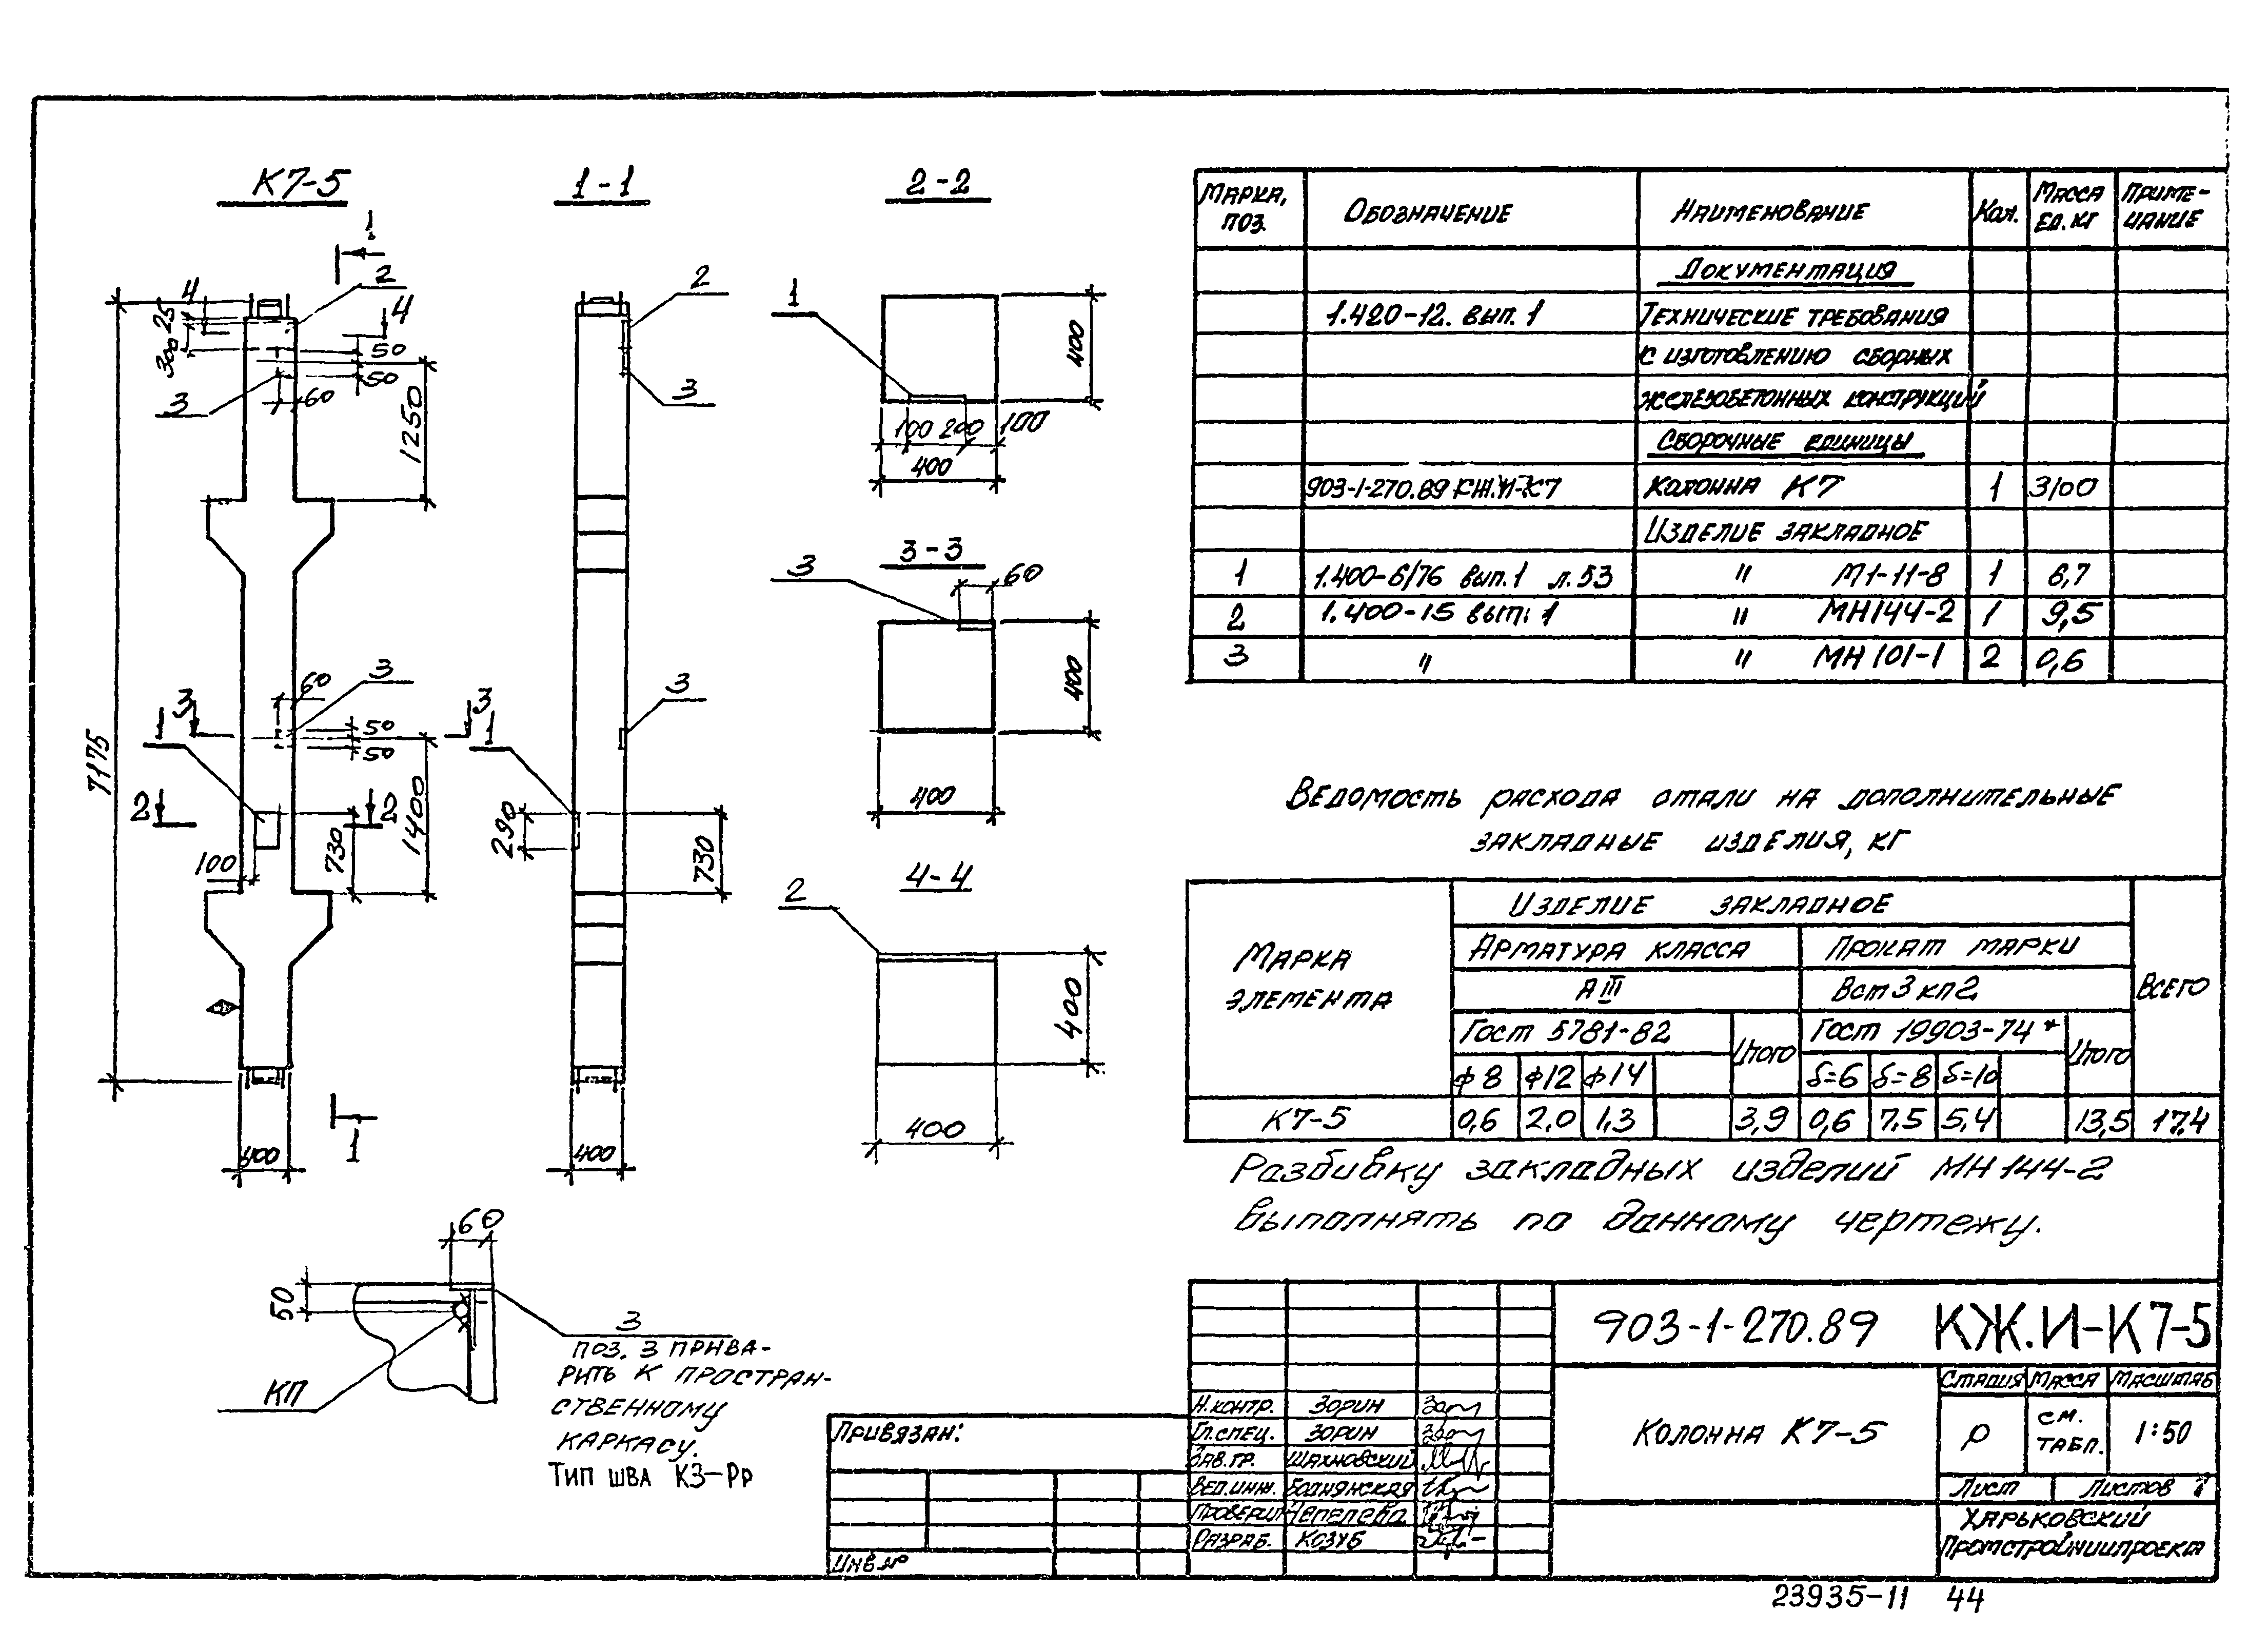 К7-5
1-1
2-2
1
2
4
4
25
300
50
50
60
3
1250
7175
3
60
3
50
50
1
2
2
100
730
1400
400
1
2
3
3
3
1
290
730
400
1
400
100 200 100
400
3-3
3
60
400
400
4-4
2
400
400
60
50
3
КП
ПОЗ. 3 ПРИВА-
РИТЬ К ПРОСТРАН-
СТВЕННОМУ
КАРКАСУ.
ТИП ШВА К3-Рр
МАРКА, ПОЗ. ОБОЗНАЧЕНИЕ НАИМЕНОВАНИЕ Кол. МАССА ЕД. КГ ПРИМЕ-ЧАНИЕ
ДОКУМЕНТАЦИЯ
1.420-12. вып. 1 ТЕХНИЧЕСКИЕ ТРЕБОВАНИЯ
К ИЗГОТОВЛЕНИЮ СБОРНЫХ
ЖЕЛЕЗОБЕТОННЫХ КОНСТРУКЦИЙ
СБОРОЧНЫЕ ЕДИНИЦЫ
903-1-270.89 КЖ.И-К7 КОЛОННА К7 1 3100
ИЗДЕЛИЕ ЗАКЛАДНОЕ
1 1.400-6/76 вып. 1 л. 53 " М1-11-8 1 6,7
2 1.400-15 вып. 1 " МН144-2 1 9,5
3 " " МН101-1 2 0,6
ВЕДОМОСТЬ РАСХОДА СТАЛИ НА ДОПОЛНИТЕЛЬНЫЕ
ЗАКЛАДНЫЕ ИЗДЕЛИЯ, КГ
МАРКА ЭЛЕМЕНТА
ИЗДЕЛИЕ ЗАКЛАДНОЕ
АРМАТУРА КЛАССА ПРОКАТ МАРКИ
А III Вст3кп2 ВСЕГО
ГОСТ 5781-82 Итого ГОСТ 19903-74* Итого
ф8 ф12 ф14 δ=6 δ=8 δ=10
К7-5 0,6 2,0 1,3 3,9 0,6 7,5 5,4 13,5 17,4
Разбивку закладных изделий МН144-2
выполнять по данному чертежу.
903-1-270.89 КЖ.И-К7-5
КОЛОННА К7-5
СТАДИЯ МАССА МАСШТАБ
Р СМ. ТАБЛ. 1:50
Лист Листов 1
ХАРЬКОВСКИЙ
ПРОМСТРОЙНИИПРОЕКТ
Н.КОНТР. ЗОРИН
ГЛ.СПЕЦ. ЗОРИН
ЗАВ.ГР. ШАХНОВСКИЙ
ВЕД.ИНЖ. БОДНЯНСКАЯ
ПРОВЕРИЛ ЧЕПЕЛЕВА
РАЗРАБ. КОЗУБ
ПРИВЯЗАН:
ИНВ.№
23935-11 44